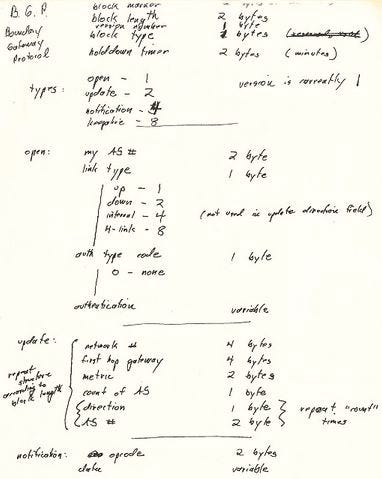 B.G.P.
Boundary
Gateway
Protocol
block marker 2 bytes
block length 2 bytes
version number 1 byte
block type bytes
holddown timer 2 bytes (minutes)
types: open - 1 version is currently 1
update - 2
notification - 4
keepalive - 8
open: my AS # 2 byte
link type 1 byte
up - 1
down - 2
internal - 4 (not used in update direction field)
H-link - 8
auth type code 1 byte
0 - none
authentication variable
update: network # 4 bytes
first hop gateway 4 bytes
metric 2 bytes
count of AS 1 byte
direction 1 byte
AS # 2 byte
repeat "count"
times
repeat
structure
according to
block length
notification: opcode 2 bytes
data variable